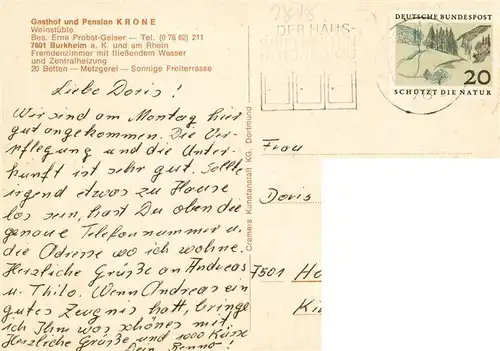 Gasthof und Pension KRONE
Weinstüble
Bes. Erna Probst-Geiser — Tel. (0 76 62) 211
7801 Burkheim a. K. und am Rhein
Fremdenzimmer mit fließendem Wasser
und Zentralheizung
20 Betten — Metzgerei — Sonnige Freiterrasse
DER HAUS-
DEUTSCHE BUNDESPOST
20
SCHÜTZT DIE NATUR
Liebe Doris!
Wir sind am Montag hier
gut angekommen. Die Ver-
pflegung und die Unter-
kunft ist sehr gut. Sollte
irgend etwas zu Hause
los sein, hast Du oben die
genaue Telefonnummer u.
die Adresse wo ich wohne.
Herzliche Grüße an Andreas
u. Thilo. Wenn Andreas ein
gutes Zeugnis hatt, bringe
ich Ihm was schönes mit.
Herzliche Grüße und 1000 Küsse
Dein Benno!
Cramers Kunstanstalt KG, Dortmund
Frau
Doris
7501